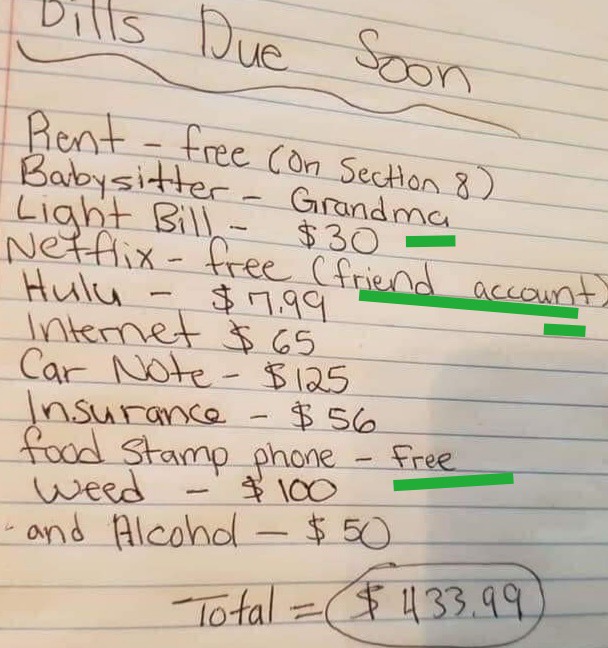 Bills Due Soon
Rent - free (on Section 8)
Babysitter - Grandma
Light Bill - $30
Netflix - free (friend account)
Hulu - $7.99
Internet $65
Car Note - $125
Insurance - $56
food stamp phone - free
Weed - $100
and Alcohol - $50
Total = $433.99